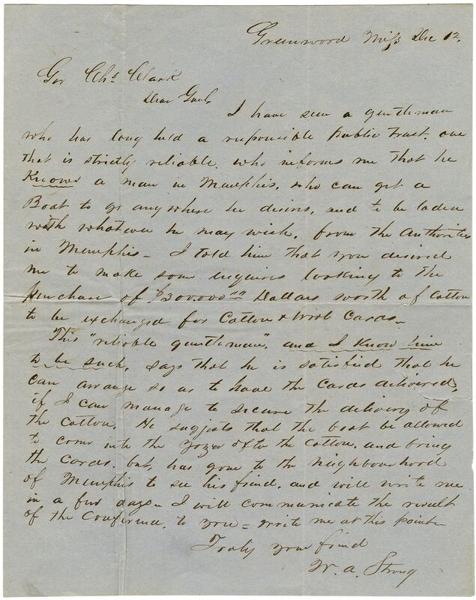 Greenwood Miss Dec 12,
Gov Chs Clark
Dear Gov.
I have seen a gentleman
who has long held a responsible public trust, one
that is strictly reliable, who informs me that he
Knows a man in Memphis, who can get a
Boat to go any where he desires, and to be laden
with whatever he may wish, from the Authorities
in Memphis - I told him that you desired
me to make some inquires looking to the
purchase of Dollars worth of Cotton
to be exchanged for Cotton & Wool Cards -
This "reliable gentleman", and I know him
to be such, says that he is satisfied that he
can arrange so as to have the Cards delivered,
if I can manage to secure the delivery of
the Cotton. He suggests that the boat be allowed
to come into the Yazoo to the Cotton, and bring
the Cards, but, has gone to the neighbourhood
of Memphis to see his friend, and will write me
in a few days - I will communicate the result
of the Conference, to you = write me at this point
Truly your friend
W. A. Strong